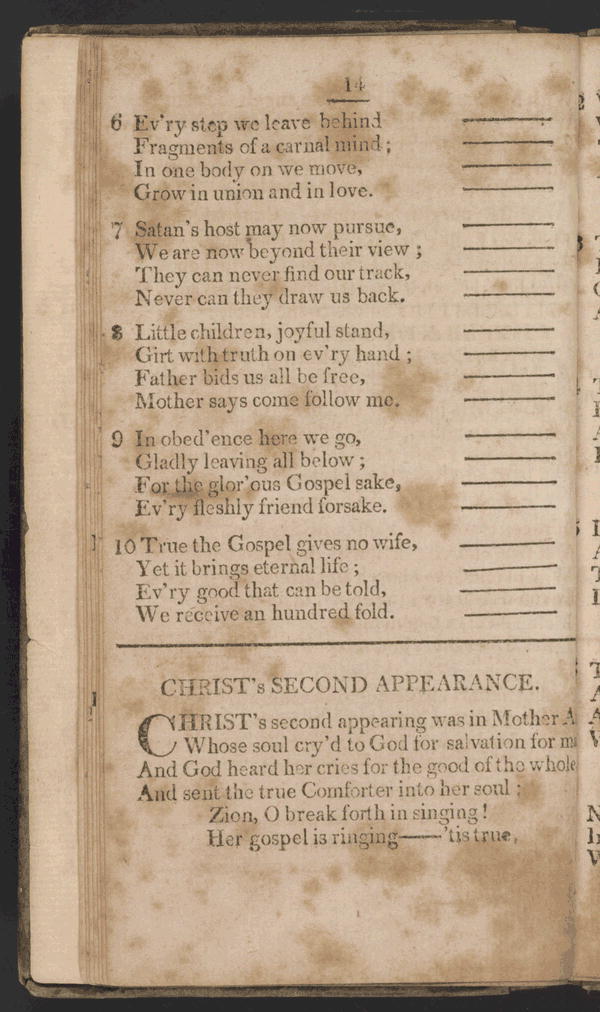 14
6 Ev'ry step we leave behind
Fragments of a carnal mind;
In one body on we move,
Grow in union and in love.
7 Satan's host may now pursue,
We are now beyond their view;
They can never find our track,
Never can they draw us back.
8 Little children, joyful stand,
Girt with truth on ev'ry hand;
Father bids us all be free,
Mother says come follow me.
9 In obed'ence here we go,
Gladly leaving all below;
For the glor'ous Gospel sake,
Ev'ry fleshly friend forsake.
10 True the Gospel gives no wife,
Yet it brings eternal life;
Ev'ry good that can be told,
We receive an hundred fold.
CHRIST's SECOND APPEARANCE.
CHRIST's second appearing was in Mother A
Whose soul cry'd to God for salvation for
And God heard her cries for the good of the whole
And sent the true Comforter into her soul;
Zion, O break forth in singing!
Her gospel is ringing——'tis true,